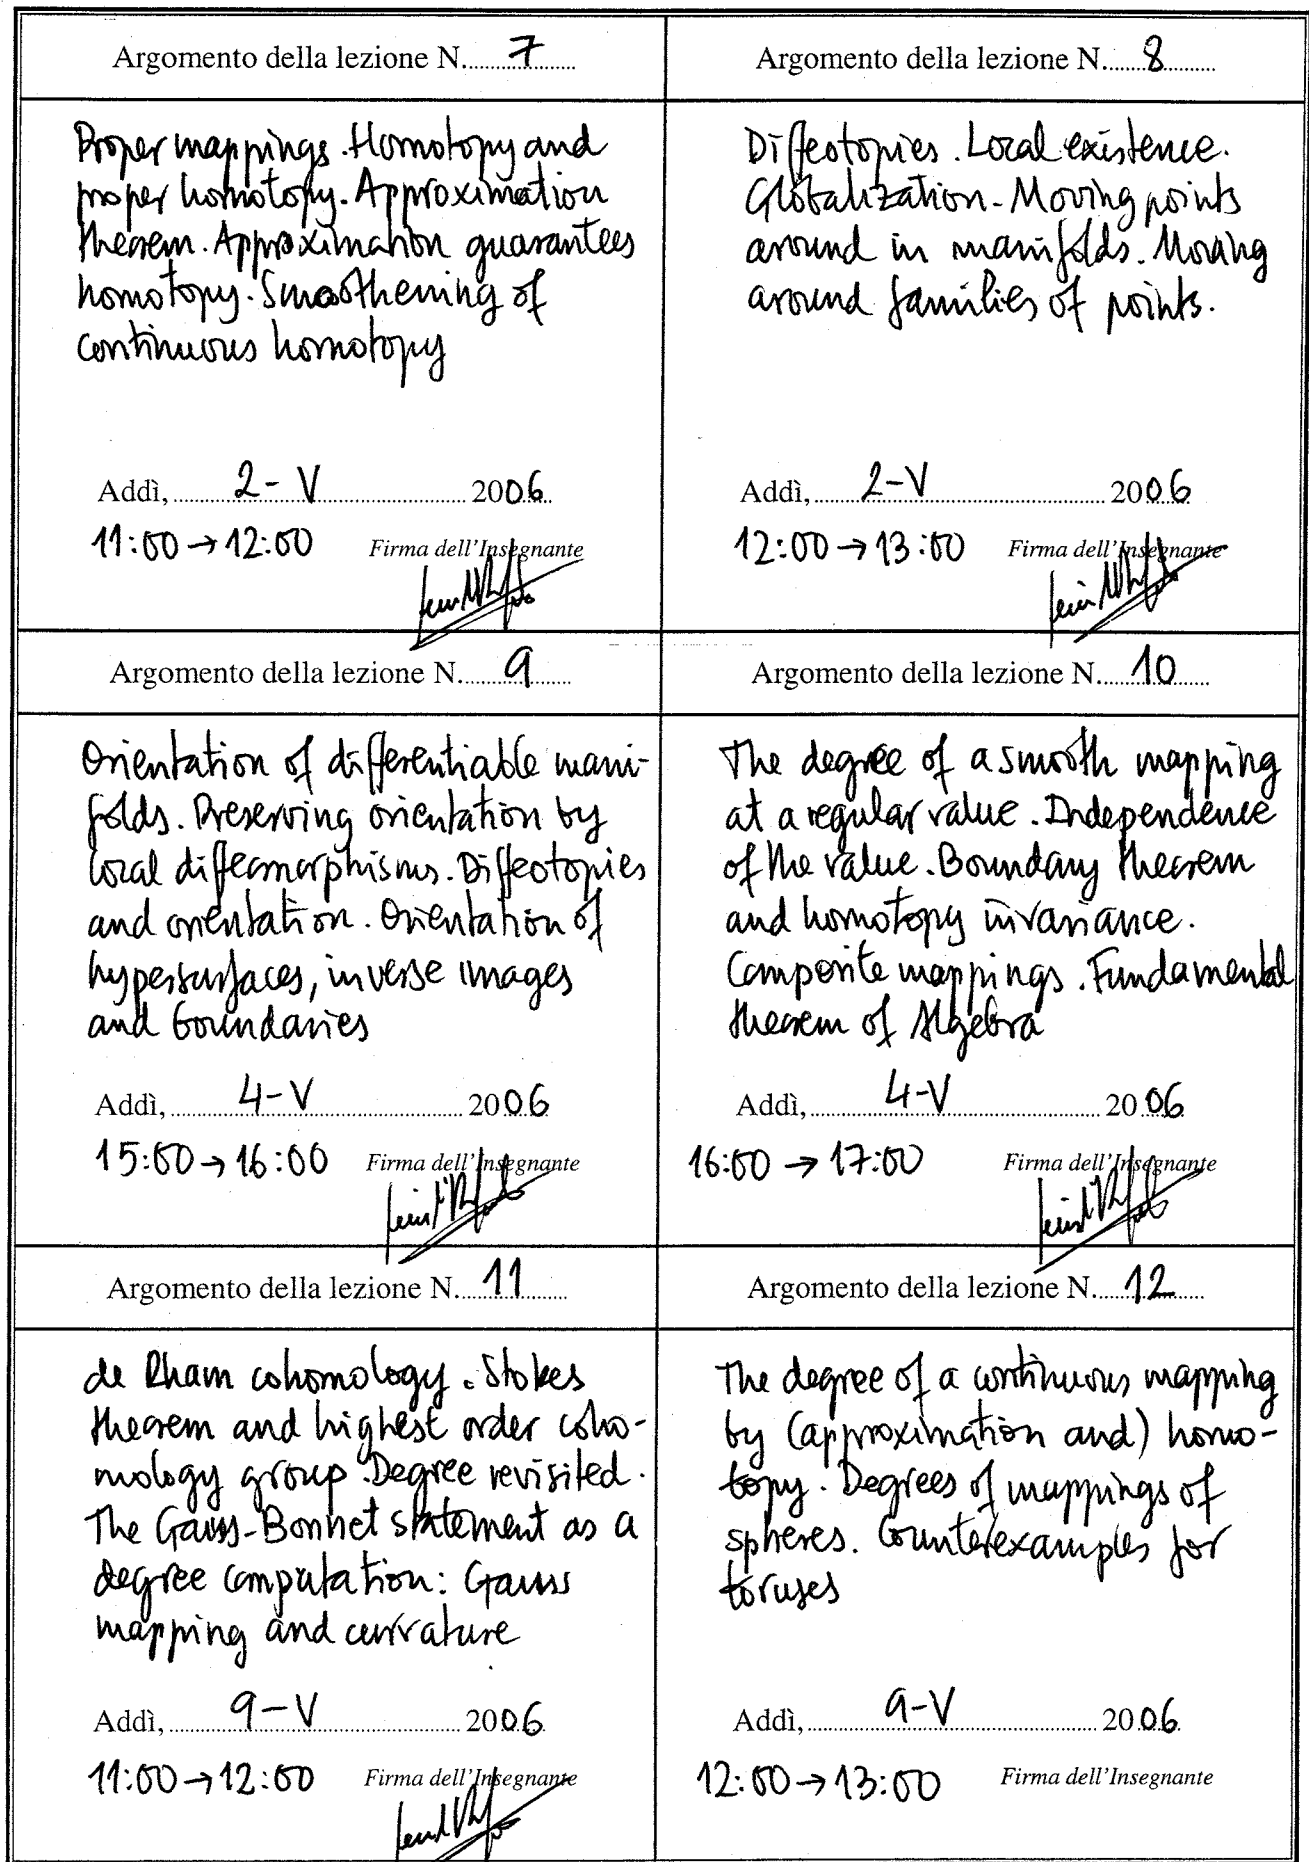 Argomento della lezione N. 7
Proper mappings. Homotopy and
proper homotopy. Approximation
theorem. Approximation guarantees
homotopy. Smoothening of
continuous homotopy
Addì, 2-V 2006
11:00 → 12:00 Firma dell'Insegnante
Argomento della lezione N. 8
Diffeotopies. Local existence.
Globalization. Moving points
around in manifolds. Moving
around families of points.
Addì, 2-V 2006
12:00 → 13:00 Firma dell'Insegnante
Argomento della lezione N. 9
Orientation of differentiable mani-
folds. Preserving orientation by
local diffeomorphisms. Diffeotopies
and orientation. Orientation of
hypersurfaces, inverse images
and boundaries
Addì, 4-V 2006
15:00 → 16:00 Firma dell'Insegnante
Argomento della lezione N. 10
The degree of a smooth mapping
at a regular value. Independence
of the value. Boundary theorem
and homotopy invariance.
Composite mappings. Fundamental
theorem of Algebra
Addì, 4-V 2006
16:00 → 17:00 Firma dell'Insegnante
Argomento della lezione N. 11
de Rham cohomology. Stokes
theorem and highest order coho-
mology group. Degree revisited.
The Gauss-Bonnet statement as a
degree computation: Gauss
mapping and curvature
Addì, 9-V 2006
11:00 → 12:00 Firma dell'Insegnante
Argomento della lezione N. 12
The degree of a continuous mapping
by (approximation and) homo-
topy. Degrees of mappings of
spheres. Counterexamples for
toruses
Addì, 9-V 2006
12:00 → 13:00 Firma dell'Insegnante